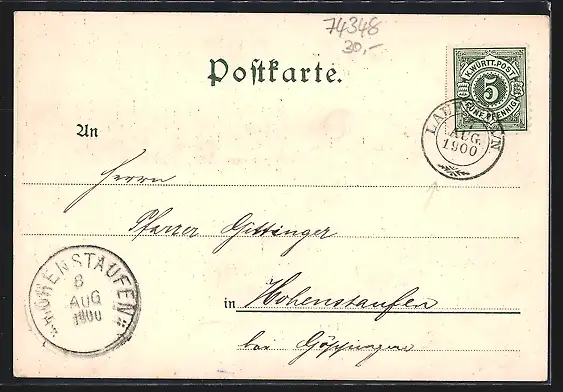 74348
30,-
Postkarte.
K. WÜRTT. POST
5
FÜNF PFENNIG
AUG.
1900
An
Herrn
Pfarrer Gittinger
in Hohenstaufen
bei Göppingen
HOHENSTAUFEN
8
AUG
1900